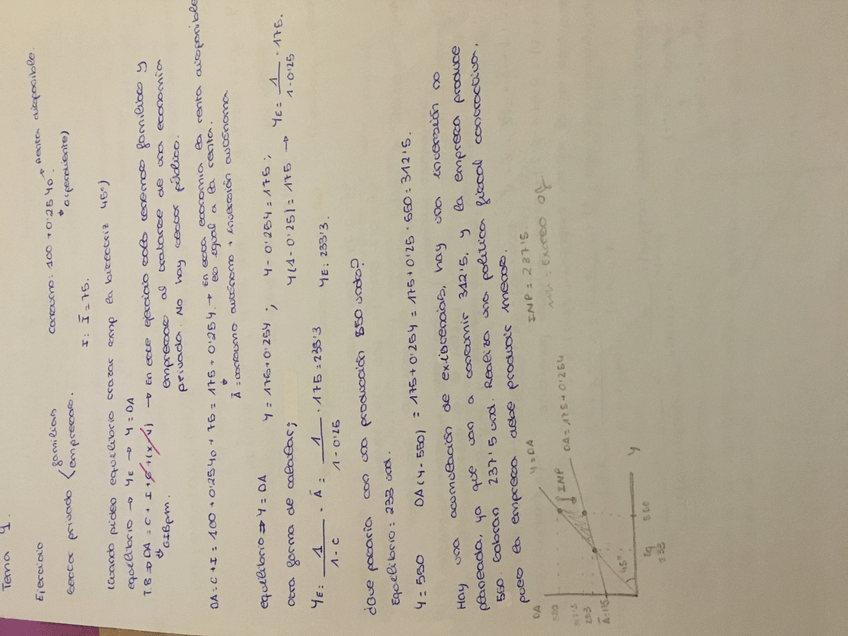 Tema 4
Ejercicio
sector privado familias consumo: 100 + 0'25 YD → Renta disponible.
empresas. (dependiente)
I: I = 75.
(Cuando piden equilibrio trazar la bisectriz 45º)
equilibrio → YE → Y = DA
DA = C + I + G + (X-M) → En este ejercicio solo tenemos familias y
PIBpm. empresas al tratarse de una economía
privada. No hay sector público.
DA = C + I = 100 + 0'25 YD + 75 = 175 + 0'25Y. → En esta economía la renta disponible
es igual a la renta.
A = consumo autónomo + inversión autónoma
equilibrio ⇒ Y = DA Y = 175 + 0'25Y ; Y - 0'25Y = 175 ;
otra forma de calcularlo; Y(1 - 0'25) = 175 → YE = 1/1-0'25 · 175.
YE = 1/1-c · A = 1/1-0'25 · 175 = 233'3 YE: 233'3.
¿Que pasaría con una producción 550 unds?
Equilibrio: 233 und.
Y = 550 DA (Y=550) = 175 + 0'25Y = 175 + 0'25 · 550 = 312'5.
Hay una acumulación de existencias, hay una inversión no
planeada, ya que van a consumir 312'5, y la empresa produce
550 sobran 237'5 und. Realiza una política fiscal contractiva,
pues la empresa debe producir menos.
INP = 237'5
DA
Y = DA
INP
DA = 175 + 0'25Y
550
233
A = 175
45º
550
Y